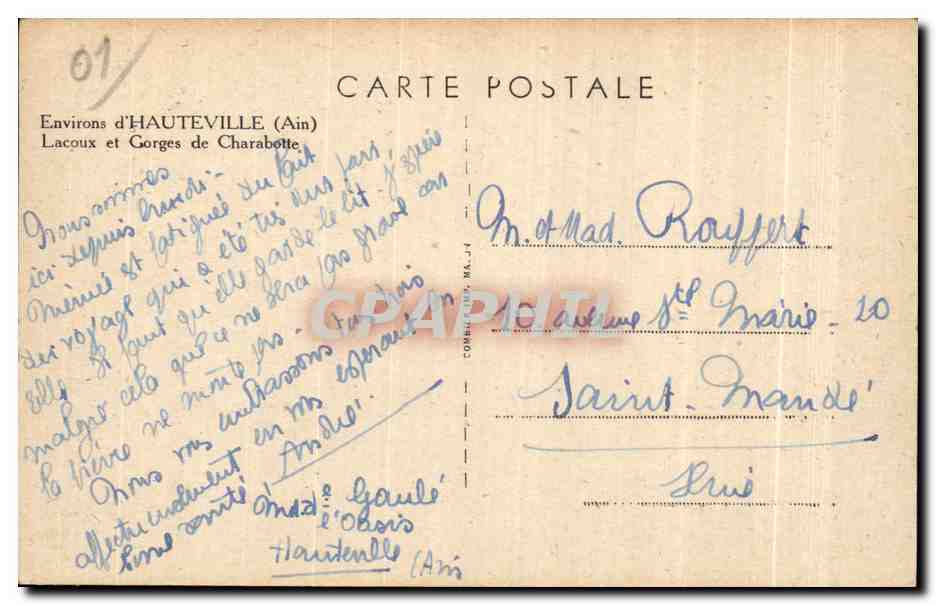 01
CARTE POSTALE
Environs d'HAUTEVILLE (Ain)
Lacoux et Gorges de Charabotte
Nous sommes
ici depuis
est fatiguée du fait
du voyage qui a été très dur pour
elle. Il faut qu'elle garde le lit. J'espère
malgré cela que ce ne sera pas grave car
la fièvre ne monte pas.
Nous vous embrassons
affectueusement en vous espérant en
bonne santé
André
Gaulé
l'Oasis
Hauteville (Ain
M. et Mad. Rouffert
10 avenue Ste Marie - 10
Saint-Mandé
Seine
CPAPHIL